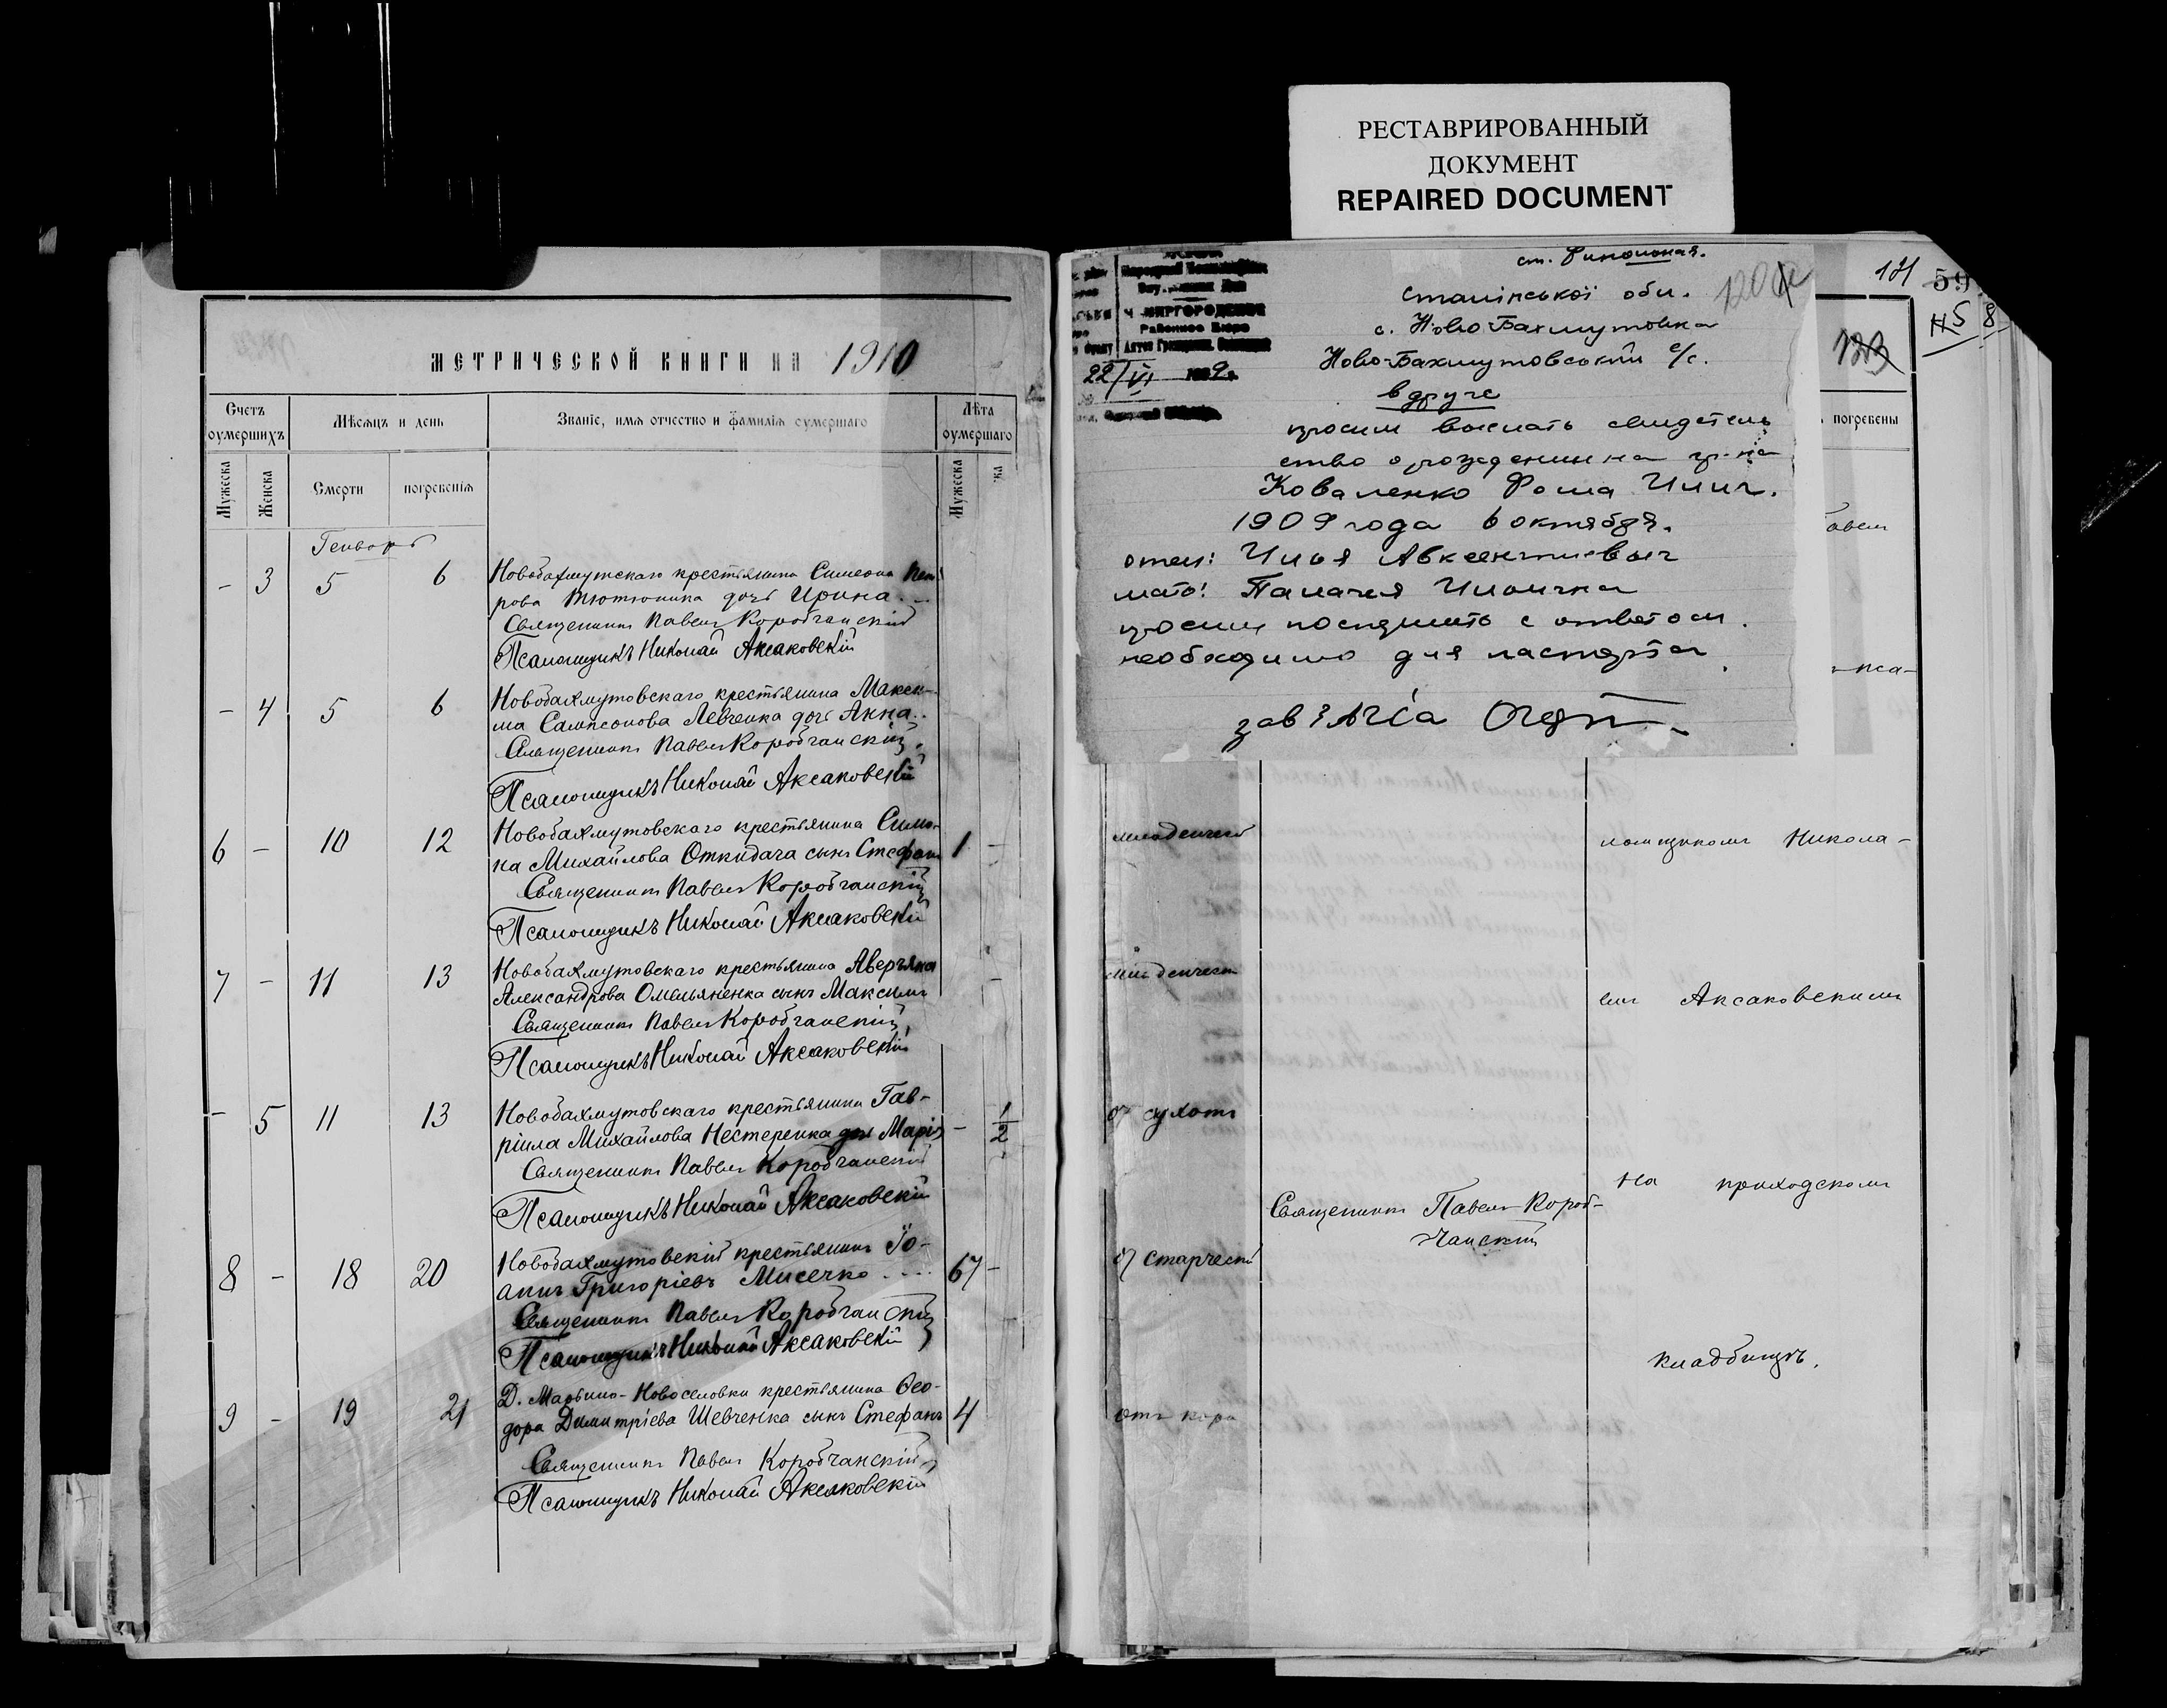 РЕСТАВРИРОВАННЫЙ
ДОКУМЕНТ
REPAIRED DOCUMENT
МЕТРИЧЕСКОЙ КНИГИ НА 1910
Счетъ оумершихъ
Мѣсяцъ и день
Званіе, имя отчество и фамилія оумершаго
Лѣта оумершаго
Мужеска
Женска
Смерти
погребенія
Мужеска
ка.
Генварь
- 3 5 6 Новобахмутскаго крестьянина Симеона Пет
рова Тютюника дочь Ирина
Священникъ Павелъ Коробчанскій
Псаломщикъ Николай Аксаковскій
- 4 5 6 Новобахмутовскаго крестьянина Макси-
ма Сампсонова Левченка дочь Анна
Священникъ Павелъ Коробчанскій
Псаломщикъ Николай Аксаковскій
6 - 10 12 Новобахмутовскаго крестьянина Симо-
на Михайлова Откидача сынъ Стефанъ 1 -
Священникъ Павелъ Коробчанскій
Псаломщикъ Николай Аксаковскій
7 - 11 13 Новобахмутовскаго крестьянина Аверьяна
Александрова Омельяненка сынъ Максимъ -
Священникъ Павелъ Коробчанскій
Псаломщикъ Николай Аксаковскій
- 5 11 13 Новобахмутовскаго крестьянина Гав-
ріила Михайлова Нестеренка дочь Марія - 1/2
Священникъ Павелъ Коробчанскій
Псаломщикъ Николай Аксаковскій
8 - 18 20 Новобахмутовскій крестьянинъ Іо-
аннъ Григоріевъ Мисечко 67 -
Священникъ Павелъ Коробчанскій
Псаломщикъ Николай Аксаковскій
9 - 19 21 Д. Марьино-Новоселовки крестьянина Ѳео-
дора Димитріева Шевченка сынъ Стефанъ 4
Священникъ Павелъ Коробчанскій
Псаломщикъ Николай Аксаковскій
МИРГОРОДСКОЕ
Районное Бюро
22/VI
Сталінської обл.
с. Ново Бахмутовка
Ново-Бахмутовський с/с.
вдруге
просим выслать свидетель
ство о рождении на гр-на
Коваленко Фома Ильич.
1909 года 6 октября.
отец: Илья Авксентиевич
мать: Палагея Ильична
просим поспешить с ответом.
необходимо для паспорта
121
59
погребены
- пса-
младенческ
ломщикомъ Никола-
младенческ
емъ Аксаковскимъ
отъ сухотъ
На приходскомъ
Священникъ Павелъ Короб-
чанскій
отъ старческ
кладбищѣ.
отъ кори